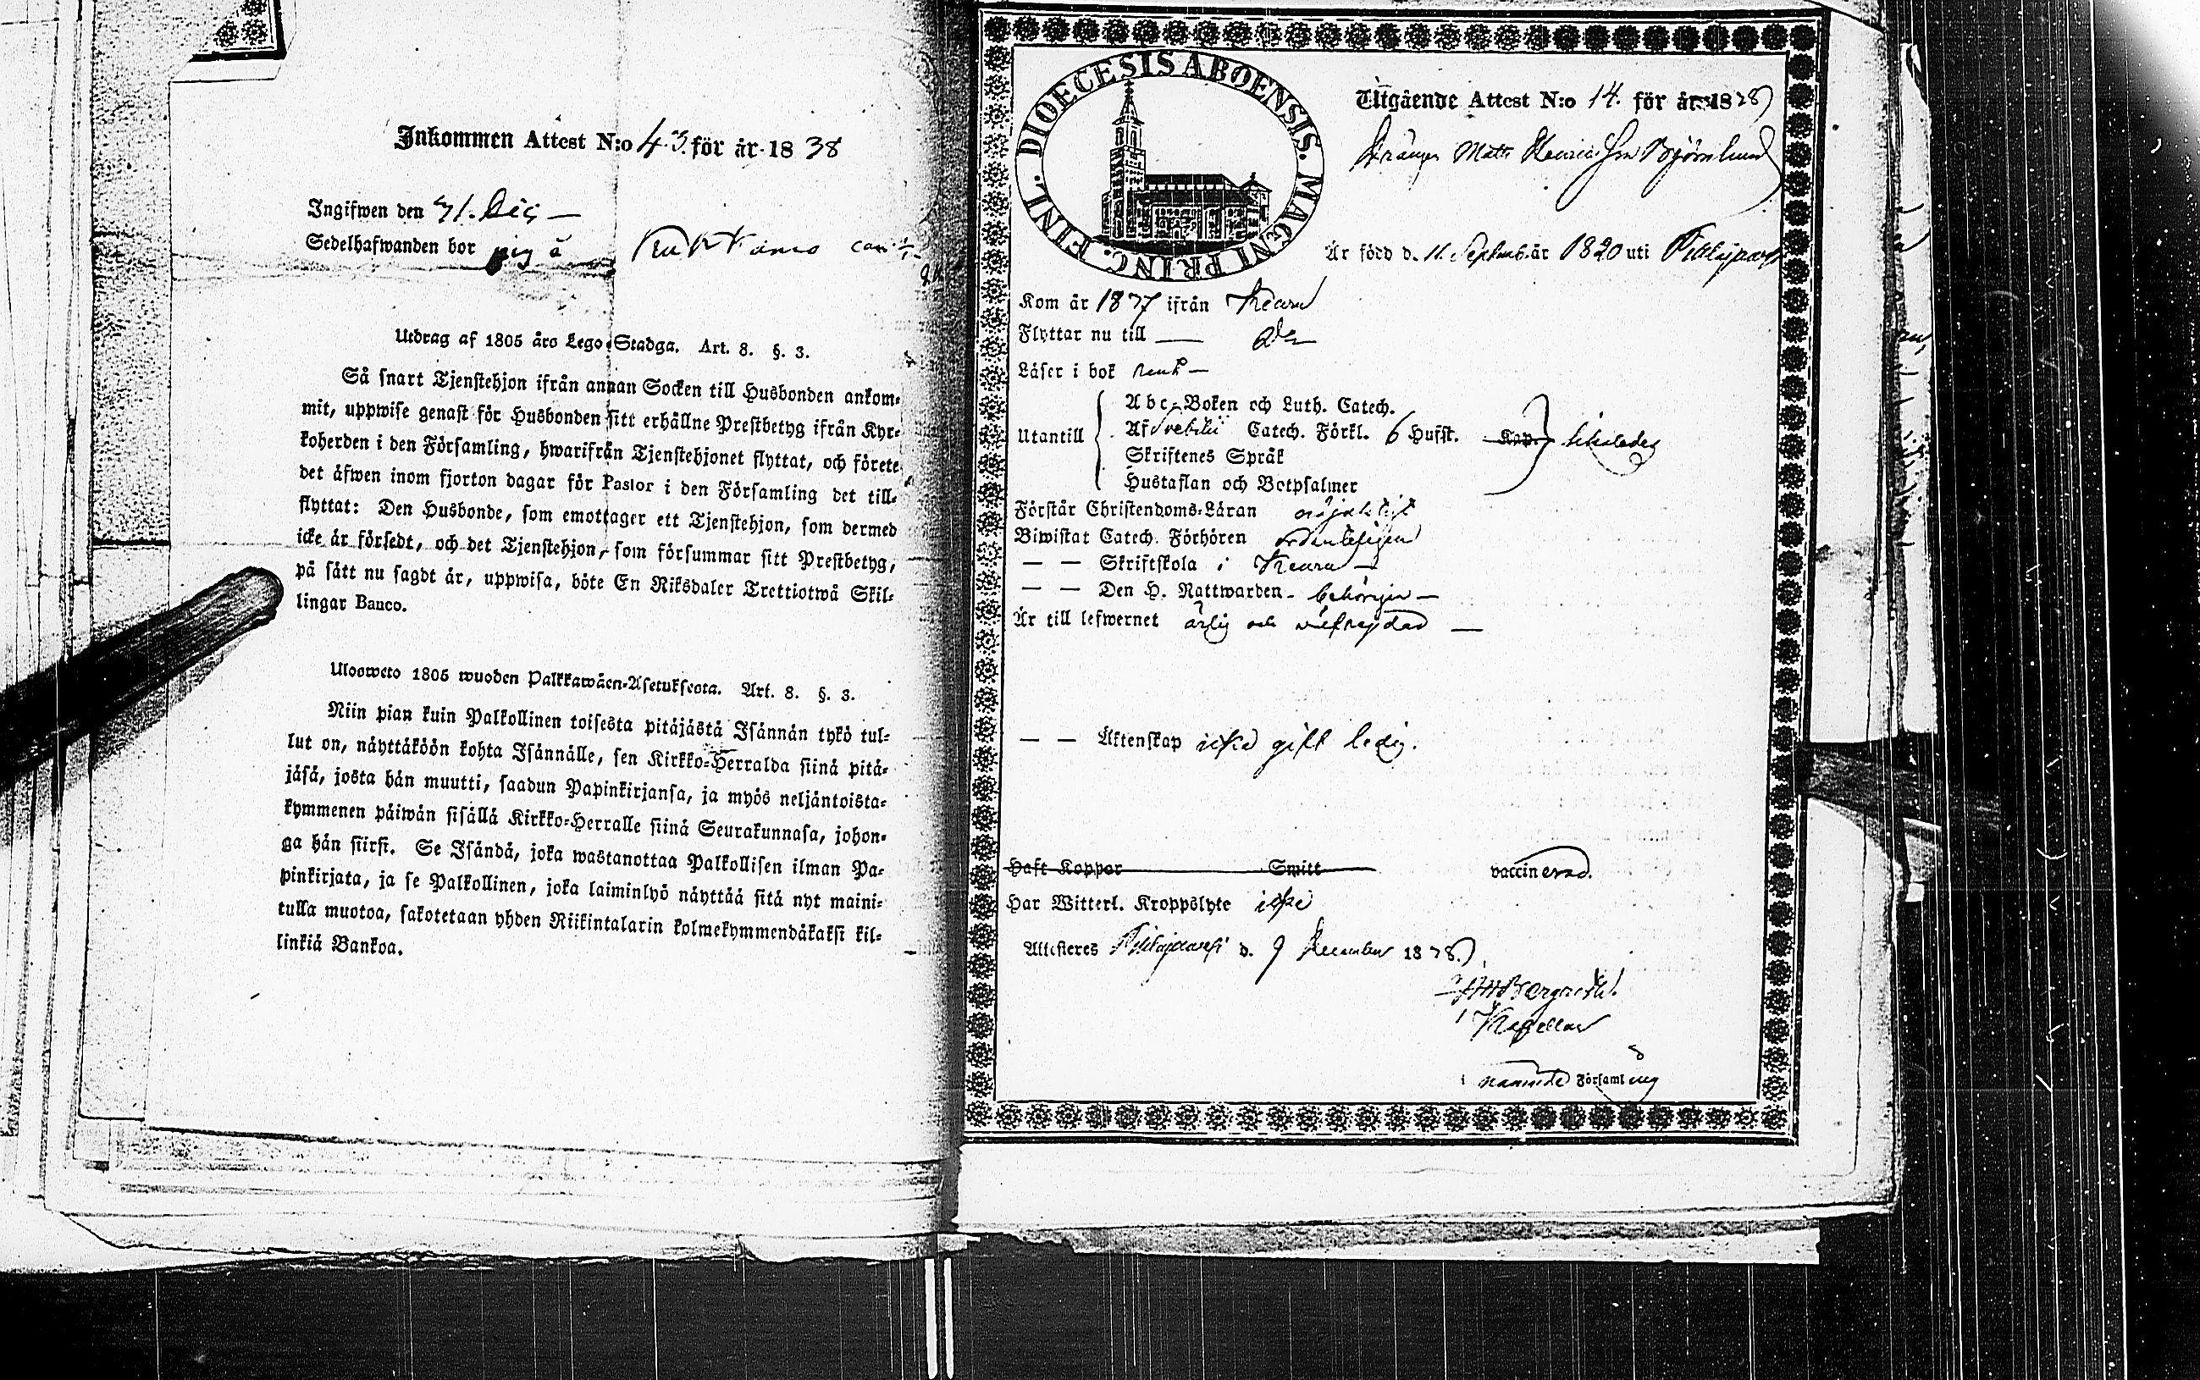 Inkommen Attest N:o 43. för år 1838
Ingifwen den 31. Dec.
Sedelhafwanden bor på
Utdrag af 1805 års Lego-Stadga. Art. 8. §. 3.
Så snart Tjenstehjon ifrån annan Socken till Husbonden ankom-
mit, uppwise genast för Husbonden sitt erhållne Prestbetyg ifrån Kyr-
koherden i den Församling, hwarifrån Tjenstehjonet flyttat, och förete
det äfwen inom fjorton dagar för Pastor i den Församling det till-
flyttat: Den Husbonde, som emottager ett Tjenstehjon, som dermed
icke är försedt, och det Tjenstehjon, som försummar sitt Prestbetyg,
på sätt nu sagdt är, uppwisa, böte En Riksdaler Trettiotwå Skil-
lingar Banco.
Ulosweto 1805 wuoden Palkkawäen-Asetuksesta. Art. 8. §. 3.
Niin pian kuin Palkollinen toisesta pitäjästä Isännän tykö tul-
lut on, näyttäköön kohta Isännälle, sen Kirkko-Herralda siinä pitä-
jäsä, josta hän muutti, saadun Papinkirjansa, ja myös neljäntoista-
kymmenen päiwän sisällä Kirkko-Herralle siinä Seurakunnasa, johon-
ga hän siirsi. Se Isändä, joka wastanottaa Palkollisen ilman Pa-
pinkirjata, ja se Palkollinen, joka laiminlyö näyttää sitä nyt maini-
tulla muotoa, sakotetaan yhden Riikintalarin kolmekymmendäkaksi kil-
linkiä Bankoa.
DIOECESIS ABOENSIS. MAGNI PRINC. FINL.
Utgående Attest N:o 14. för år 1838
Drängen Matts Henricsson Björnlund
Är född d. 11. Septemb. år 1820 uti
Kom år 1837 ifrån
Flyttar nu till
Läser i bok rent
Utantill
Abc-Boken och Luth. Catech.
Af Svebilii Catech. Förkl. 6 Hufst. Kap.
Skriftenes Språk
Hustaflan och Botpsalmer
Förstår Christendoms-Läran nöjaktigt
Biwistat Catech. Förhören ordenteligen
— — Skriftskola i
— — Den H. Nattwarden behörigen
Är till lefwernet ärlig och wälfrejdad
— — Äktenskap icke gift ledig.
Haft Koppor Smitt vaccinerad.
Har Witterl. Kroppslyte icke
Attesteres d. 9 December 1838.
Kapellan
i nämnde Församling